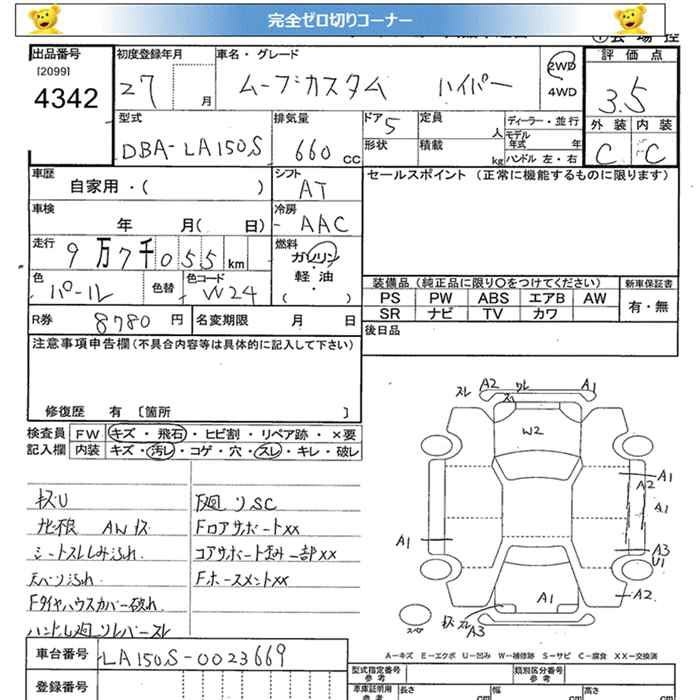 完全ゼロ切りコーナー
出品番号 初度登録年月 車名・グレード 評価点
[2099]
4342 27 月 ムーブカスタム ハイパー 2WD 4WD 3.5
型式 排気量 ドア 5 定員 人 ディーラー・並行 外装 内装
DBA-LA150S 660 cc 形状 積載 kg モデル年式 年 ハンドル 左・右 C C
車歴 自家用・( ) シフト AT セールスポイント (正常に機能するものに限ります)
車検 年 月( 日) 冷房 AAC
走行 9万7千055km 燃料 ガソリン・軽油・( )
色 パール 色替 色コード W24
装備品 (純正品に限り〇をつけてください) 新車保証書
PS PW ABS エアB AW 有・無
SR ナビ TV カワ
R券 8780 円 名変期限 月 日 後日品
注意事項申告欄 (不具合内容等は具体的に記入して下さい)
修復歴 有 [箇所 ]
検査員 FW キズ・飛石・ヒビ割・リペア跡・×要
記入欄 内装 キズ・汚レ・コゲ・穴・スレ・キレ・破レ
キズU
AWキズ
シートスレしみ汚れ
天ペン汚れ
Fタイヤハウスカバー破れ
ハンドル廻りレバースレ
下廻りSC
FロアサポートXX
コアサポート歪み一部XX
FホースメントXX
スレ A2 リレ A1
スレ
W2
A1
A2
A1
A1 A3
U1
A2
A1
スペア キズ スレ A3
A－キズ E－エクボ U－凹み W－補修跡 S－サビ C－腐食 XX－交換済
車台番号 LA150S-0023669
登録番号
型式指定番号 参考 類別区分番号 参考
車庫証明用 参考 長さ cm 幅 cm 高さ cm